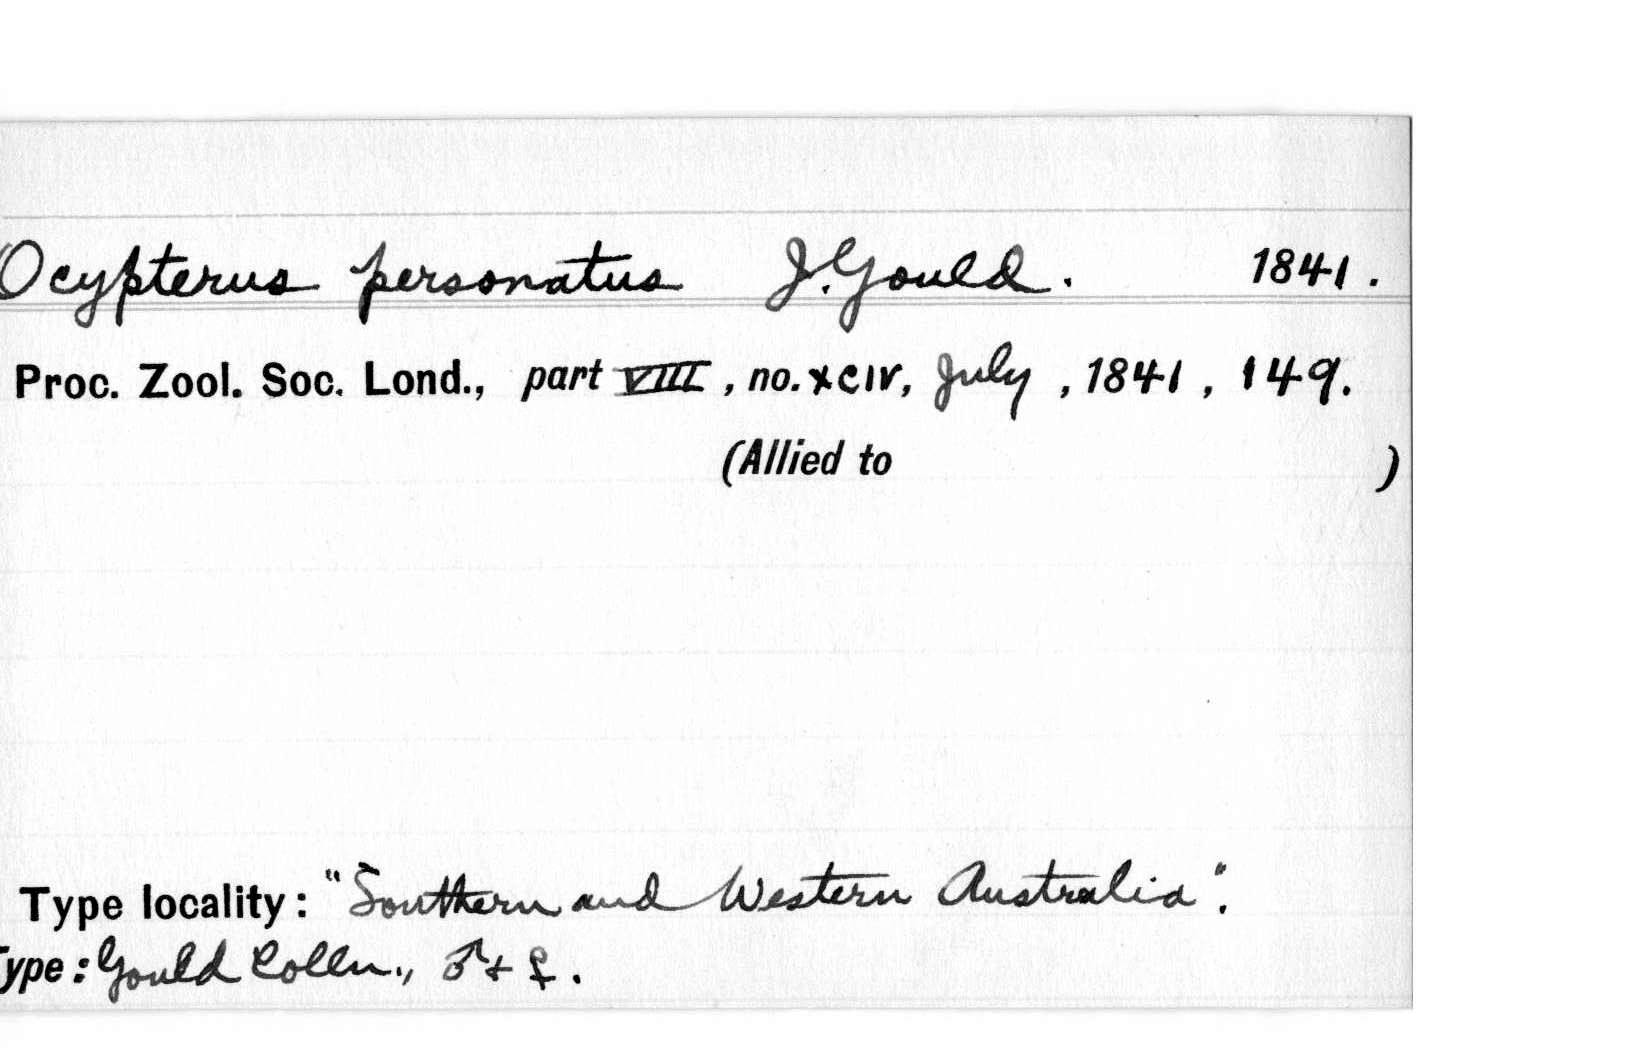 Ocypterus personatus J. Gould. 1841.
Proc. Zool. Soc. Lond., part VIII, no. XCIV, July, 1841, 149.
(Allied to )
Type locality: "Southern and Western Australia".
Type: Gould Colln., ♂ + ♀.